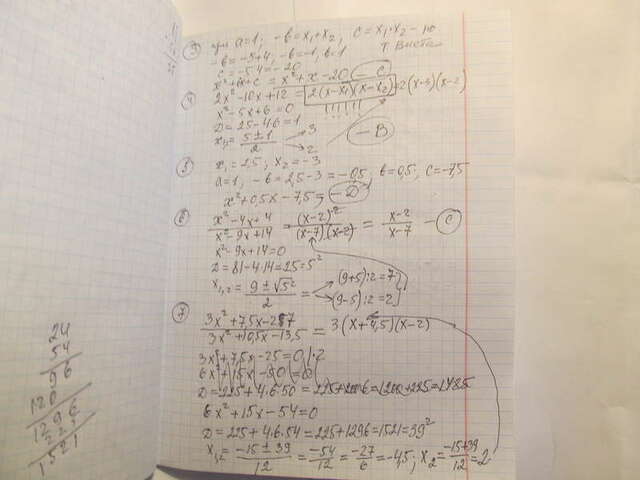 ③ при a=1; -в=x₁+x₂, c=x₁·x₂ - по
т. Виета
-в=-5+4, -в=-1, в=1
c=-5·4=-20
x²+вx+c = x²+x-20 - C
④ 2x²-10x+12 = 2(x-x₁)(x-x₂)=2(x-3)(x-2)
x²-5x+6=0
D=25-4·6=1
x₁,₂=(5±1)/2 → 3
→ 2
- B
⑤ x₁=2,5; x₂=-3
a=1, -в=2,5-3=-0,5, в=0,5, c=-7,5
x²+0,5x-7,5 - D
⑥ (x²-4x+4)/(x²-9x+14) = (x-2)²/((x-7)(x-2)) = (x-2)/(x-7) - C
x²-9x+14=0
D=81-4·14=25=5²
x₁,₂=(9±√5²)/2 = (9+5):2=7
(9-5):2=2
⑦ (3x²+7,5x-27)/(3x²+10,5x-13,5) = 3(x+4,5)(x-2)
3x²+7,5x-25=0 |·2
6x²+15x-50=0
6x²+15x-54=0
D=225+4·6·54=225+1296=1521=39²
x₁,₂=(-15±39)/12=-54/12=-27/6=-4,5; x₂=(-15+39)/12=2
24
54
96
120
1296
225
1521